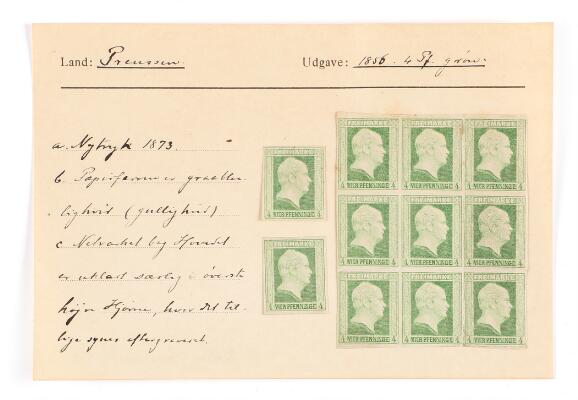 Land: Preussen.
Udgave: 1856. 4 Pf. grøn.
a. Nytryk 1873
b. Papirfarven er graaller
lighvid (gullighvid)
c Netværket bag Hovedet
er utklart særlig i øverste
højre Hjørne, hvor det til-
lige synes eftergraveret.
FREIMARKE
4 VIER PFENNINGE 4
FREIMARKE
4 VIER PFENNINGE 4
FREIMARKE FREIMARKE FREIMARKE
4 VIER PFENNINGE 4 4 VIER PFENNINGE 4 4 VIER PFENNINGE 4
FREIMARKE FREIMARKE FREIMARKE
4 VIER PFENNINGE 4 4 VIER PFENNINGE 4 4 VIER PFENNINGE 4
FREIMARKE FREIMARKE FREIMARKE
4 VIER PFENNINGE 4 4 VIER PFENNINGE 4 4 VIER PFENNINGE 4